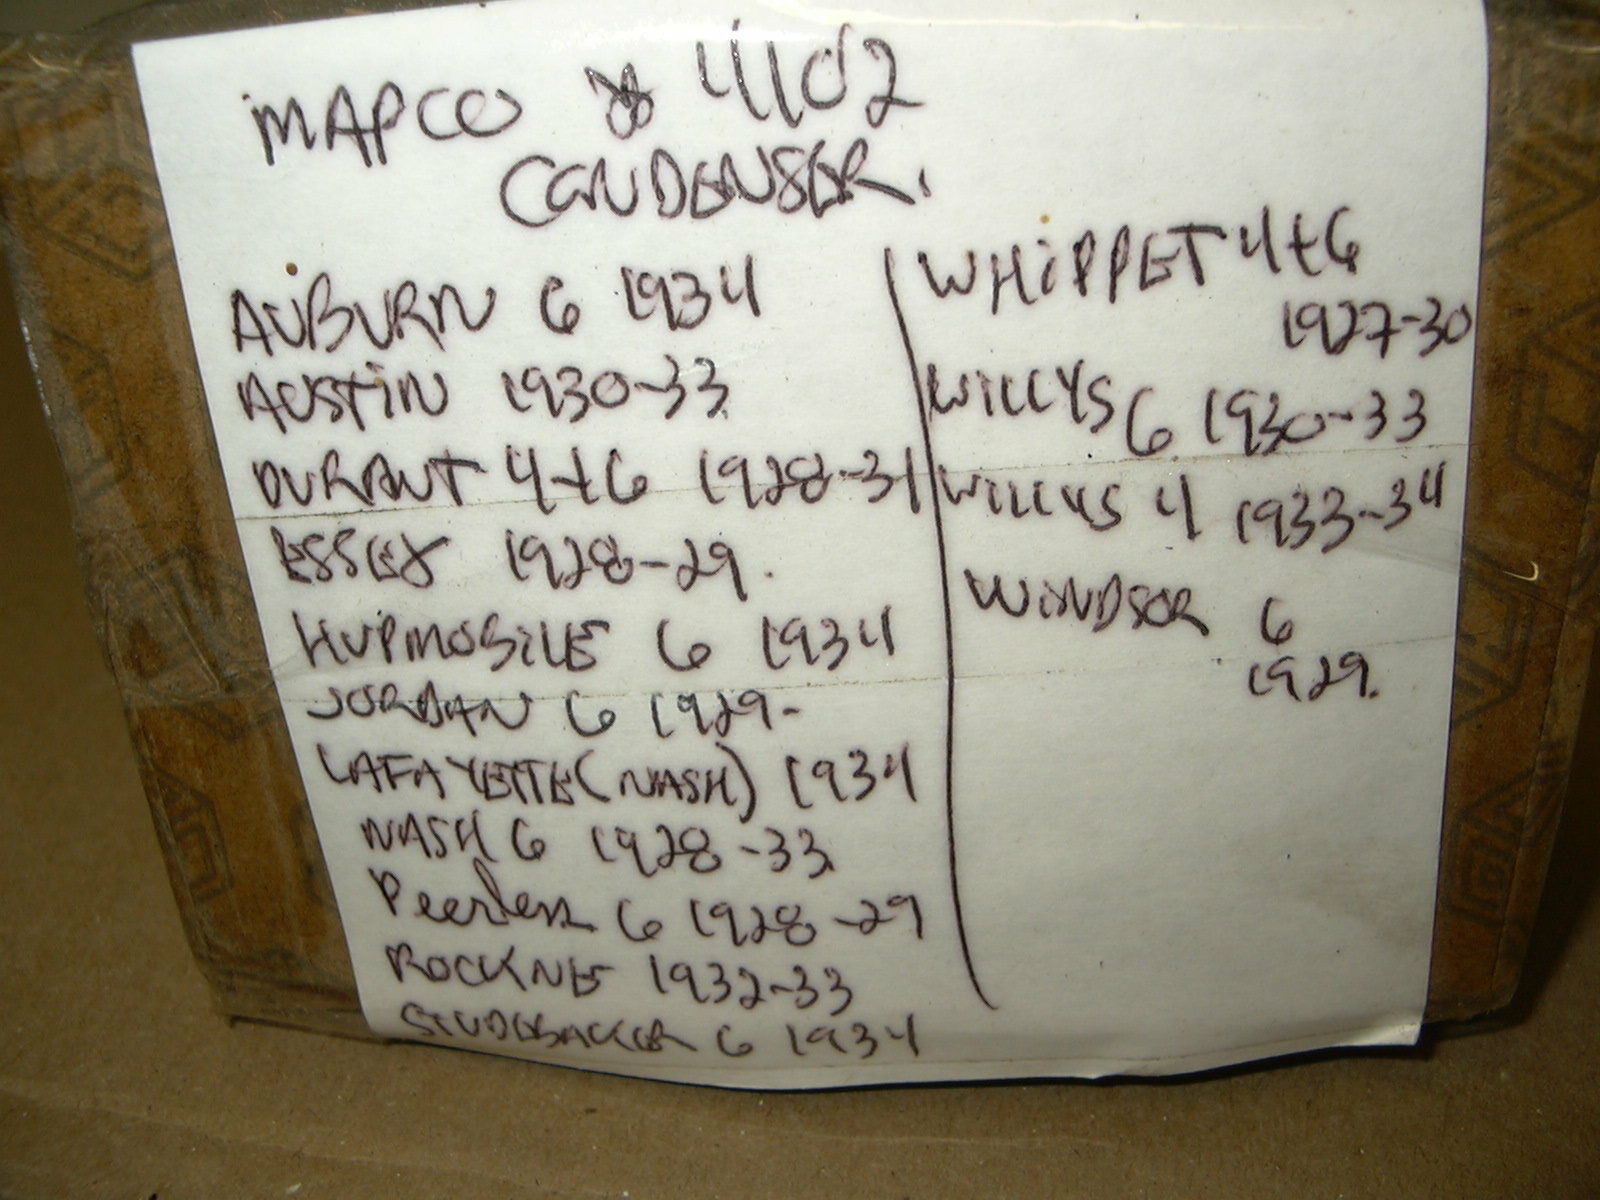 MAPCO # 4102
CONDENSER.
AUBURN 6 1934
AUSTIN 1930-33
DURANT 4+6 1928-31
ESSEX 1928-29.
HUPMOBILE 6 1934
JORDAN 6 1929-
LAFAYETTE (NASH) 1934
NASH 6 1928-33
Peerless 6 1928-29
ROCKNE 1932-33
STUDEBACKER 6 1934
WHIPPET 4+6
1927-30
WILLYS 6 1930-33
WILLYS 4 1933-34
WINDSOR 6
1929.